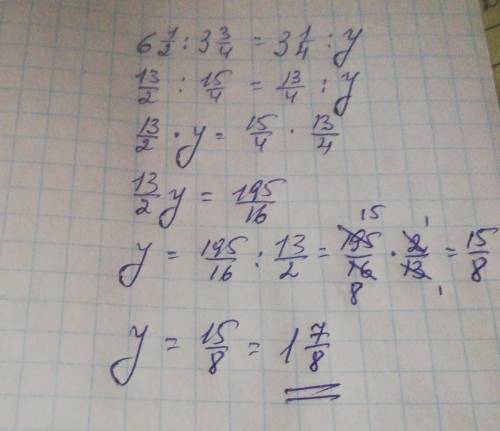 6 1/2 : 3 3/4 = 3 1/4 : y
13/2 : 15/4 = 13/4 : y
13/2 · y = 15/4 · 13/4
13/2 y = 195/16
y = 195/16 : 13/2 = 195/16 · 2/13 = 15/8
15 1
8 1
y = 15/8 = 1 7/8